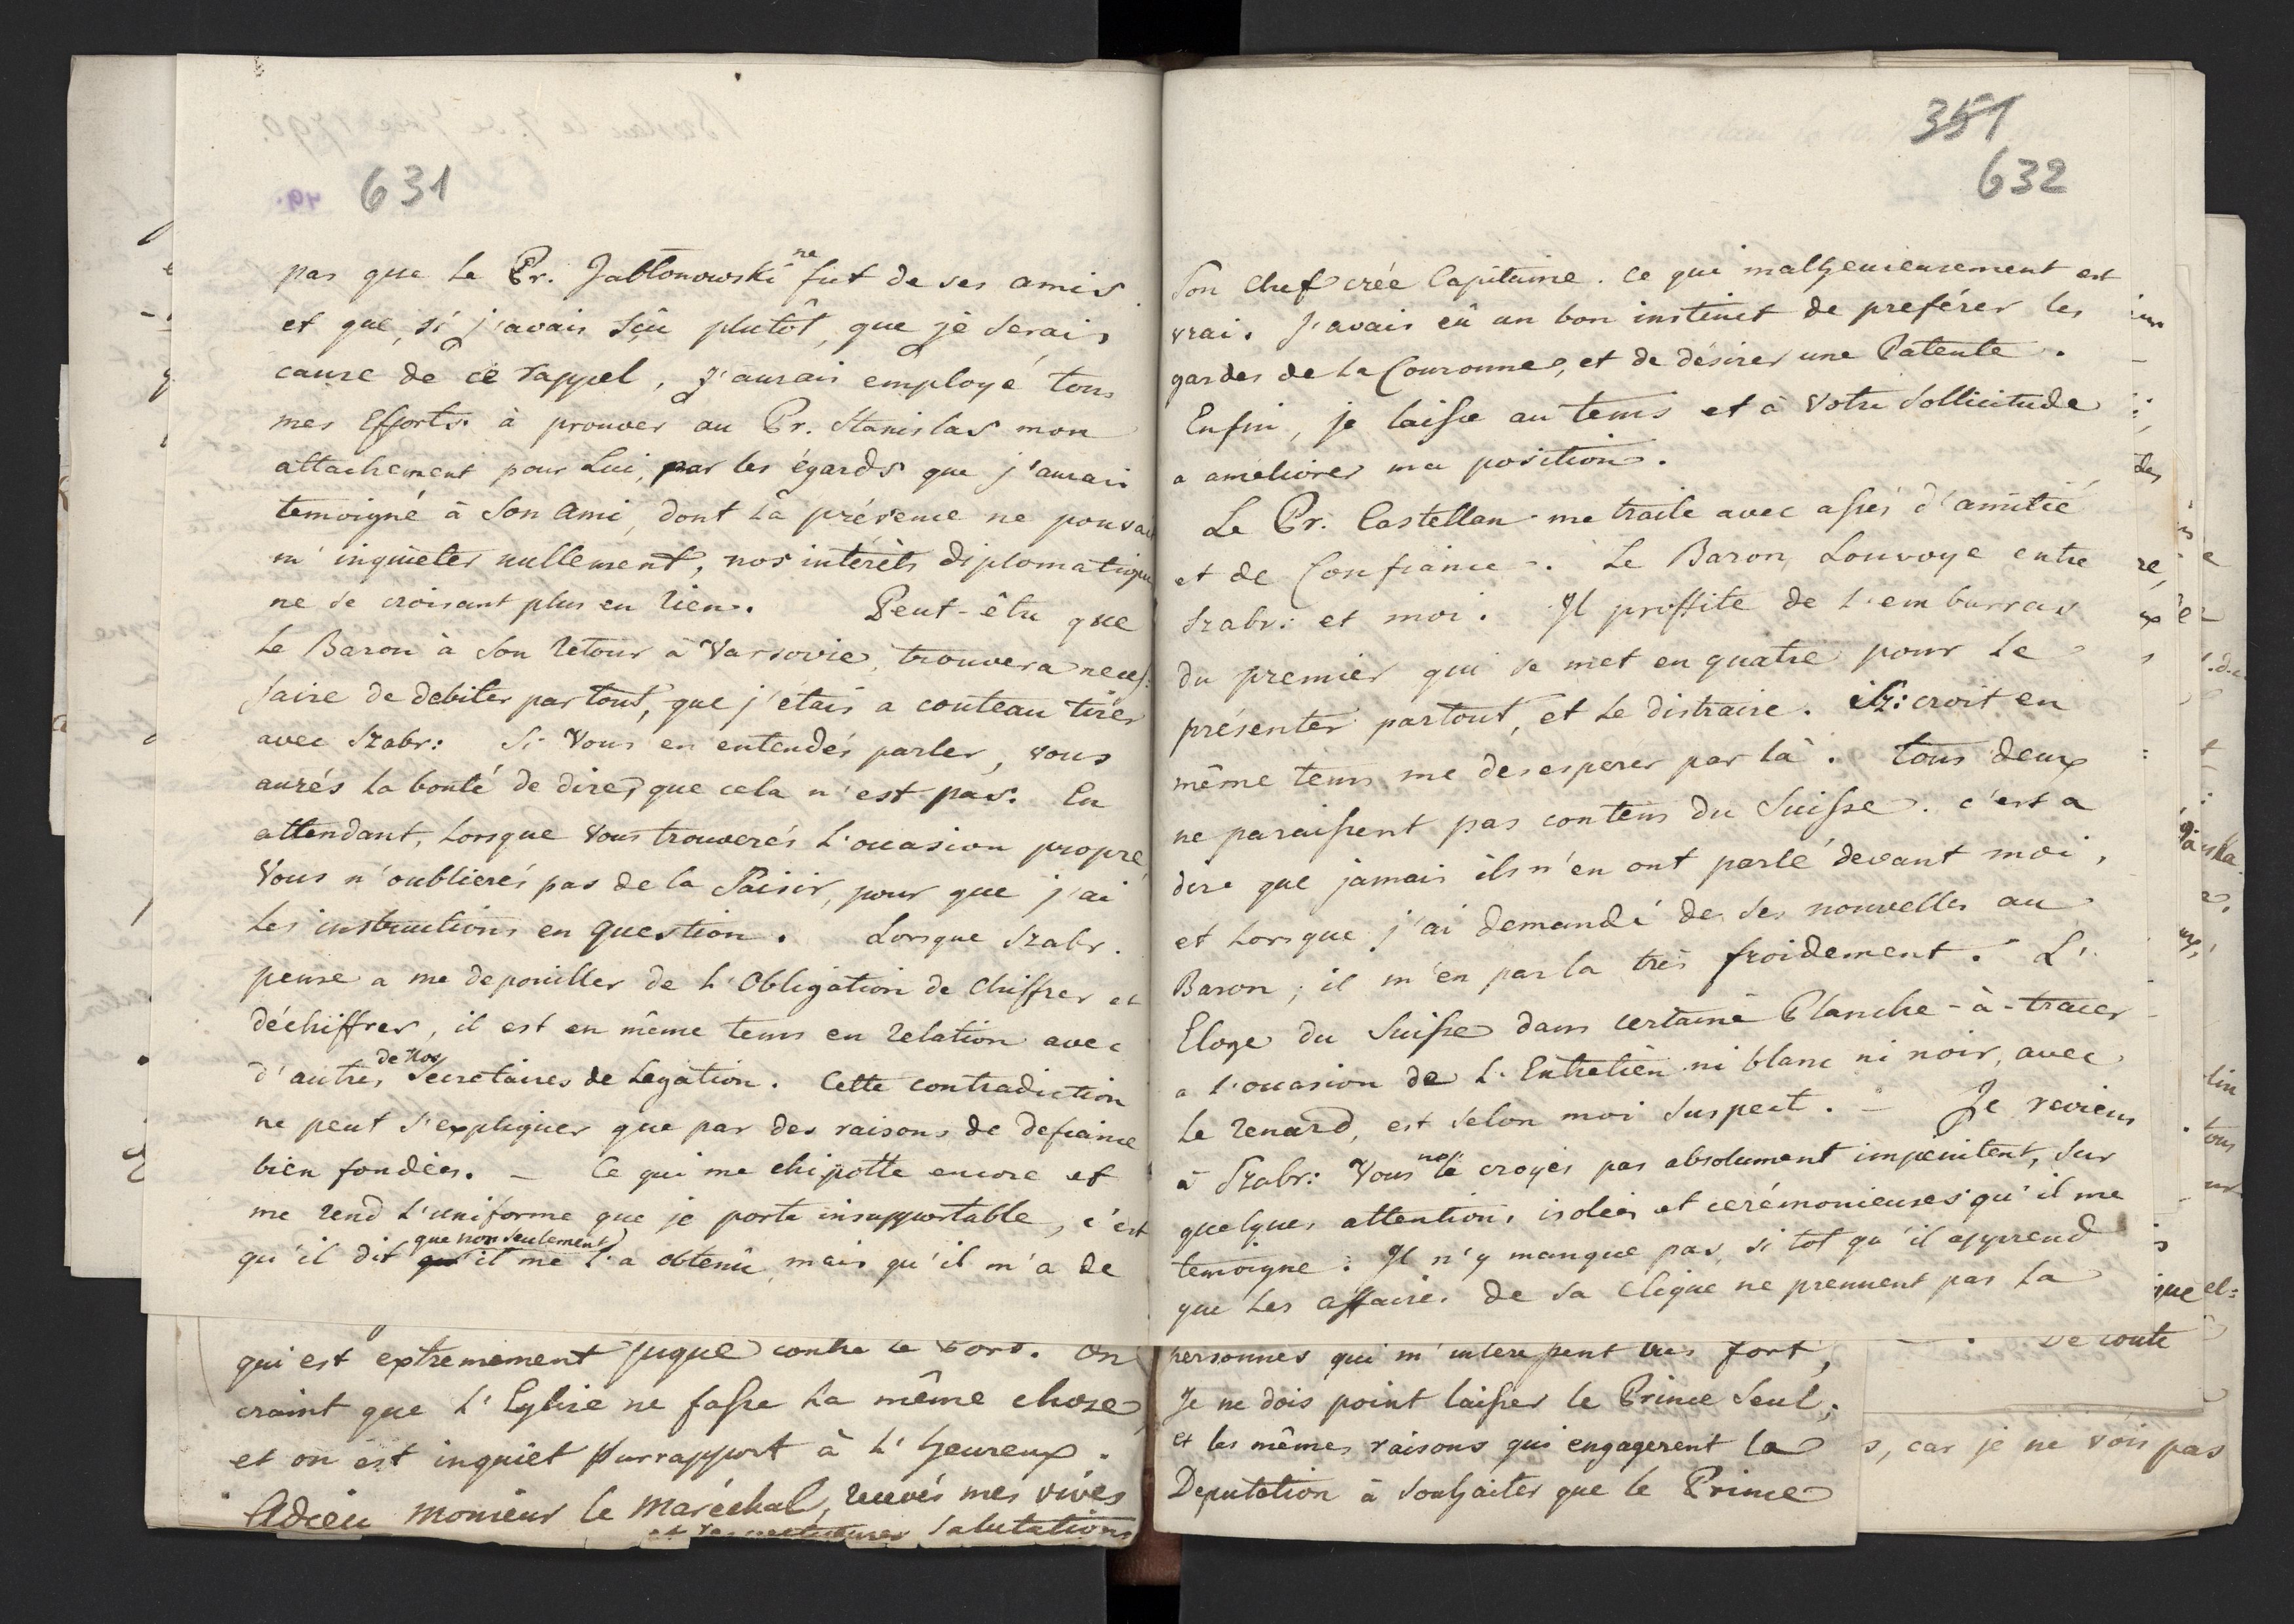 631
pas que le Pr. Jabłonowski ne fut de ses amis
et que, si j'avais sçû plutôt, que je serais
cause de ce rappel, j'aurais employé tous
mes Efforts à prouver au Pr. Stanislas mon
attachement pour Lui, par les égards que j'aurais
temoigné à son ami, dont la présence ne pouvait
m'inquiéter nullement, nos intérêts diplomatiques
ne se croisant plus en rien. Peut-être que
le Baron à son retour à Varsovie, trouvera neces-
saire de debiter partout, que j'étais a couteau tirés
avec Szabr: Si Vous en entendés parler, vous
aurés la bonté de dire, que cela n'est pas. En
attendant, lorsque Vous trouverés l'occasion propre
Vous n'oublierés pas de la saisir, pour que j'ai
les instructions en question. Lorsque Szabr.
pense a me depouiller de l'Obligation de chiffrer et
déchiffrer, il est en même tems en relation avec
d'autres de nos Secretaires de Legation. Cette contradiction
ne peut s'expliquer que par des raisons de defiance
bien fondées. – Ce qui me chipotte encore et
me rend l'uniforme que je porte insupportable, c'est
qu'il dit que non seulement il me l'a obtenû, mais qu'il m'a de
qui est extremement piqué contre le
craint que l'Eglise ne fasse la même chose,
et on est inquiet par rapport à l'heureux.
Adieu Monsieur le Maréchal, recevés mes vives
et respectueuses salutations
351
632
son chef crée Capitaine. Ce qui malheureusement est
vrai. J'avais eû un bon instinct de preférer les
gardes de la Couronne, et de désirer une Patente.
Enfin, je laisse au tems et à votre sollicitude
a améliorer ma position.
Le Pr. Castellan me traite avec assés d'amitié
et de Confiance. Le Baron louvoye entre
Szabr: et moi. Il proffite de l'embarras
du premier qui se met en quatre pour le
présenter partout, et le distraire. Sz: croit en
même tems me desesperer par là. Tous deux
ne paraissent pas contens du Suisse. c'est a
dire que jamais ils n'en ont parlé devant moi,
et lorsque j'ai demandé de ses nouvelles au
Baron, il m'en parla très froidement. L'
Eloge du Suisse dans certaine Planche-à-tracer
a l'occasion de l'Entretien ni blanc ni noir, avec
le renard, est selon moi suspect. – Je reviens
à Szabr: Vous ne le croyés pas absolument impenitent, sur
quelques attentions isolées et cerémonieuses qu'il me
temoigne: Il n'y manque pas, si tot qu'il apprend
que les affaires de sa clique ne prennent pas la
personnes qui m'interessent tres fort,
Je ne dois point laisser le Prince seul,
et les mêmes raisons qui engagerent la
Deputation à souhaiter que le Prince
De toute
s, car je ne vois pas